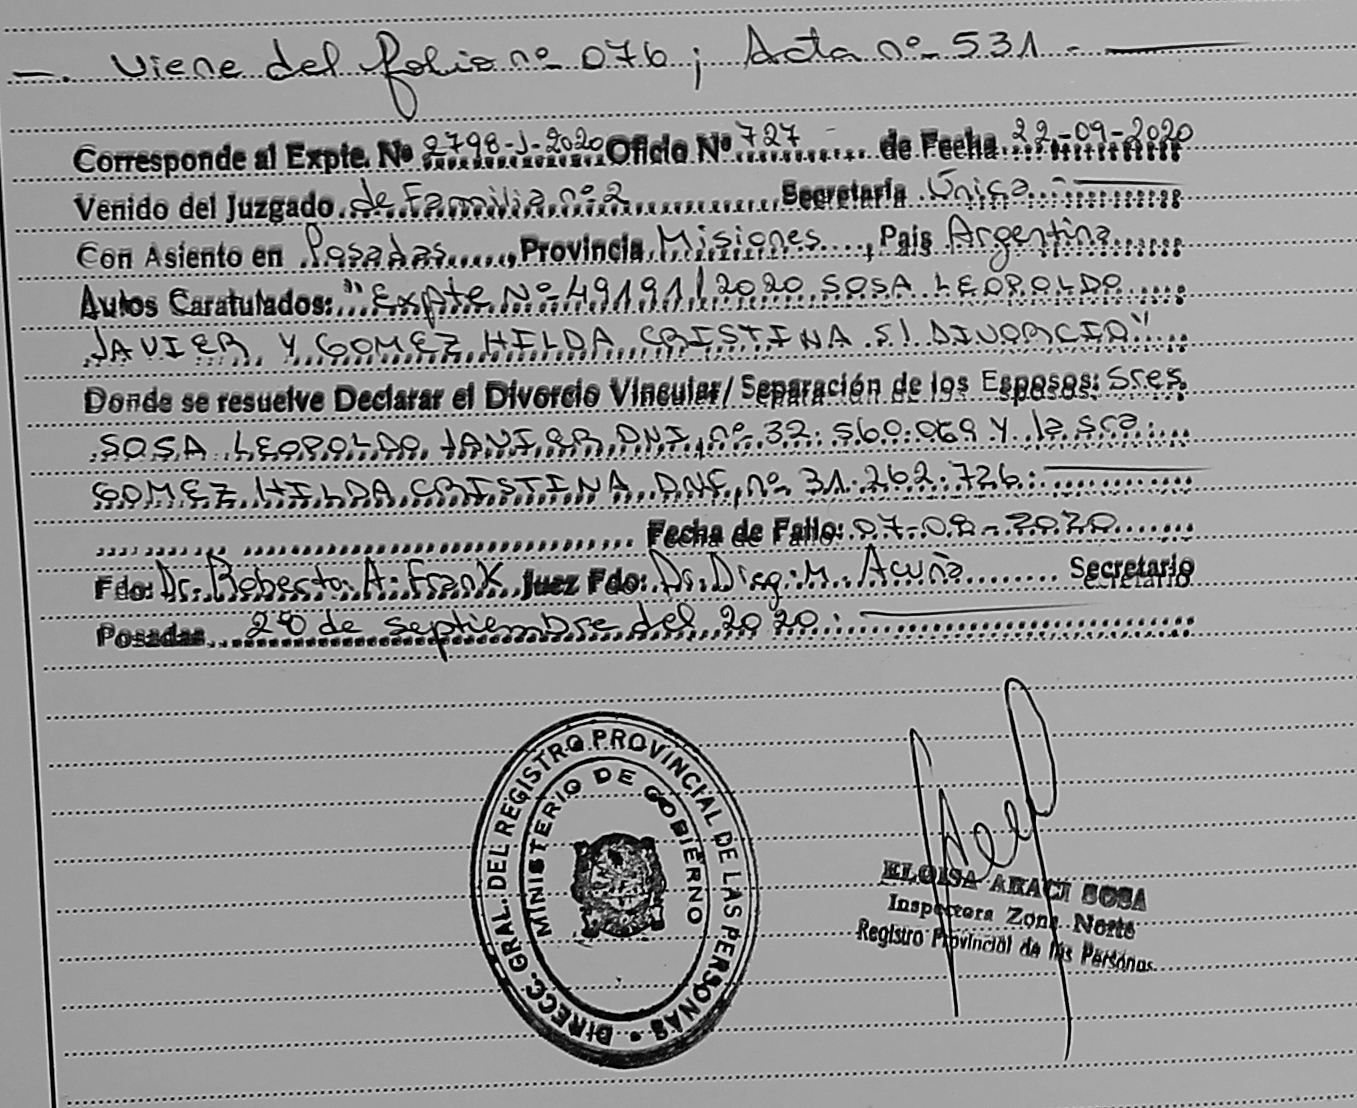 —. Viene del folio nº 076; Acta nº 531.-
Corresponde al Expte. Nº 2798-J-2020 Oficio Nº 727 - de Fecha 22-09-2020
Venido del Juzgado de Familia nº 2 Secretaría Única.-
Con Asiento en Posadas, Provincia Misiones, Pais Argentina
Autos Caratulados: "Expte Nº 49191/2020 SOSA LEOPOLDO
JAVIER Y GOMEZ HILDA CRISTINA S/ DIVORCIO"
Donde se resuelve Declarar el Divorcio Vincular/ Separación de los Esposos: Sres.
SOSA LEOPOLDO JAVIER DNI, nº 32.560.069 Y la sra.
GOMEZ HILDA CRISTINA DNI, nº 31.262.726.-
Fecha de Fallo: 07-09-2020
Fdo: Dr. Roberto. A. Frank Juez Fdo: Dr. Dieg. M. Acuña Secretario
Posadas 28 de septiembre del 2020.-
DIRECC. GRAL. DEL REGISTRO PROVINCIAL DE LAS PERSONAS
MINISTERIO DE GOBIERNO
ELOISA ARACI SOSA
Inspectora Zona Norte
Registro Provincial de las Personas